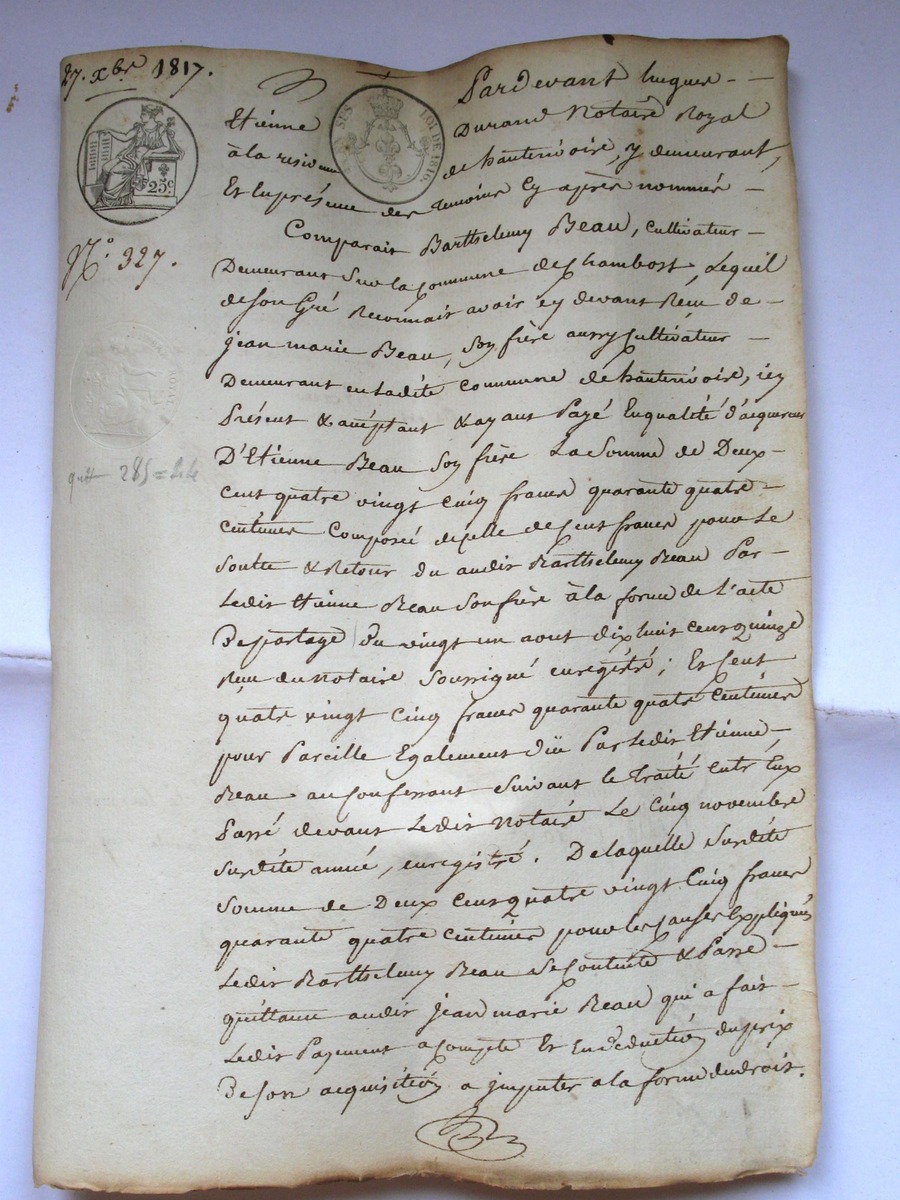 27. xbre 1817.
25c.
LOI DE 1816.
N.° 327.
quitt 285 =
Pardevant hugues
Etienne Durand Notaire Royal
à la residence de hauterivoire, y demeurant,
Et En présence des temoins cy après nommés
Comparait Barthelemy Beau, cultivateur
Demeurant sur la commune de Chambost, Lequel
de son Gré Reconnait avoir cy devant Reçu de
jean marie Beau, son frère aussy Cultivateur
Demeurant en Ladite commune de hauterivoire, icy
Présent & acceptant & ayant Payé En qualité d'acquereur
D'Etienne Beau son frère La somme de Deux
cent quatre vingt Cinq francs quarante quatre
centimes Composée de celle de Cent francs pour Le
soulte & Retour du audit Barthelemy Beau Par
Ledit Etienne Beau son frère à la forme de L'acte
De partage du vingt un aout dix huit cent Quinze
Reçu du Notaire soussigné enregistré ; Et Cent
quatre vingt Cinq francs quarante quatre Centimes
pour Pareille Egalement düe Par Ledit Etienne
Beau au Confessant suivant le traité entr'Eux
Passé devant Ledit Notaire Le Cinq novembre
susdite année, enregistré. De laquelle susdite
somme de Deux Cent quatre vingt Cinq francs
quarante quatre centimes pour les Causes Expliquées
Ledit Barthelemy Beau se Contente & Passe
quittance audit jean marie Beau qui a fait
Ledit Payement a Compte Et En déduction du prix
De son acquisition a jmputer a la forme du droit.